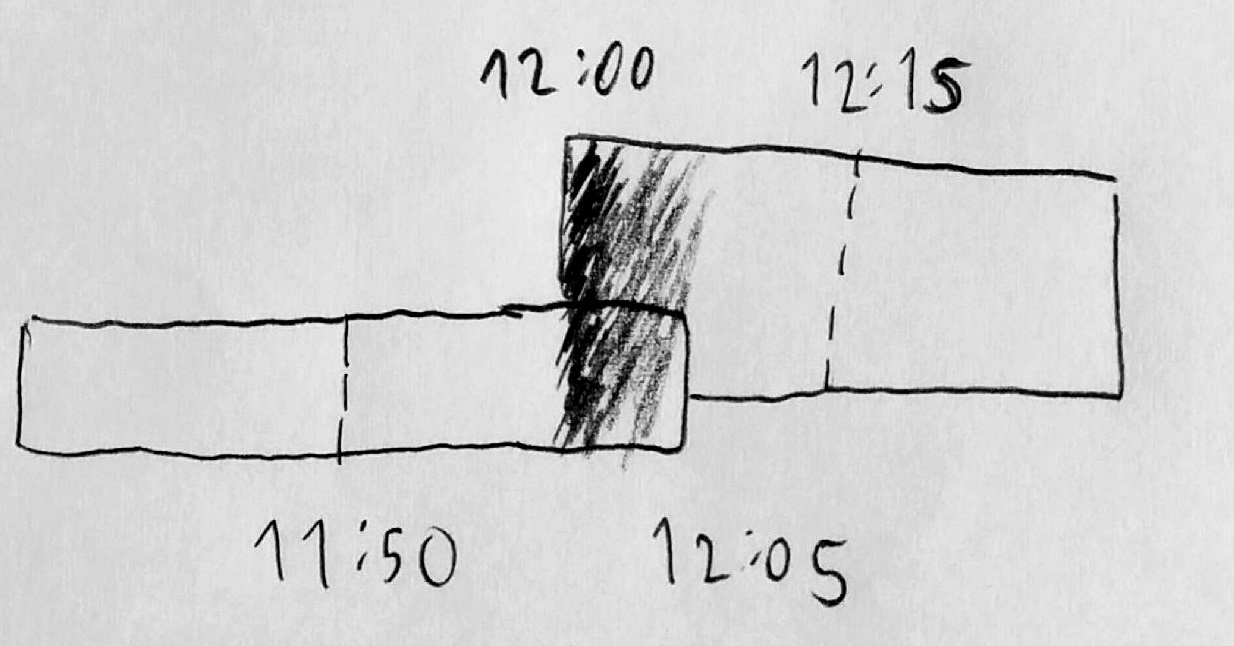 12:00 12:15
11:50 12:05